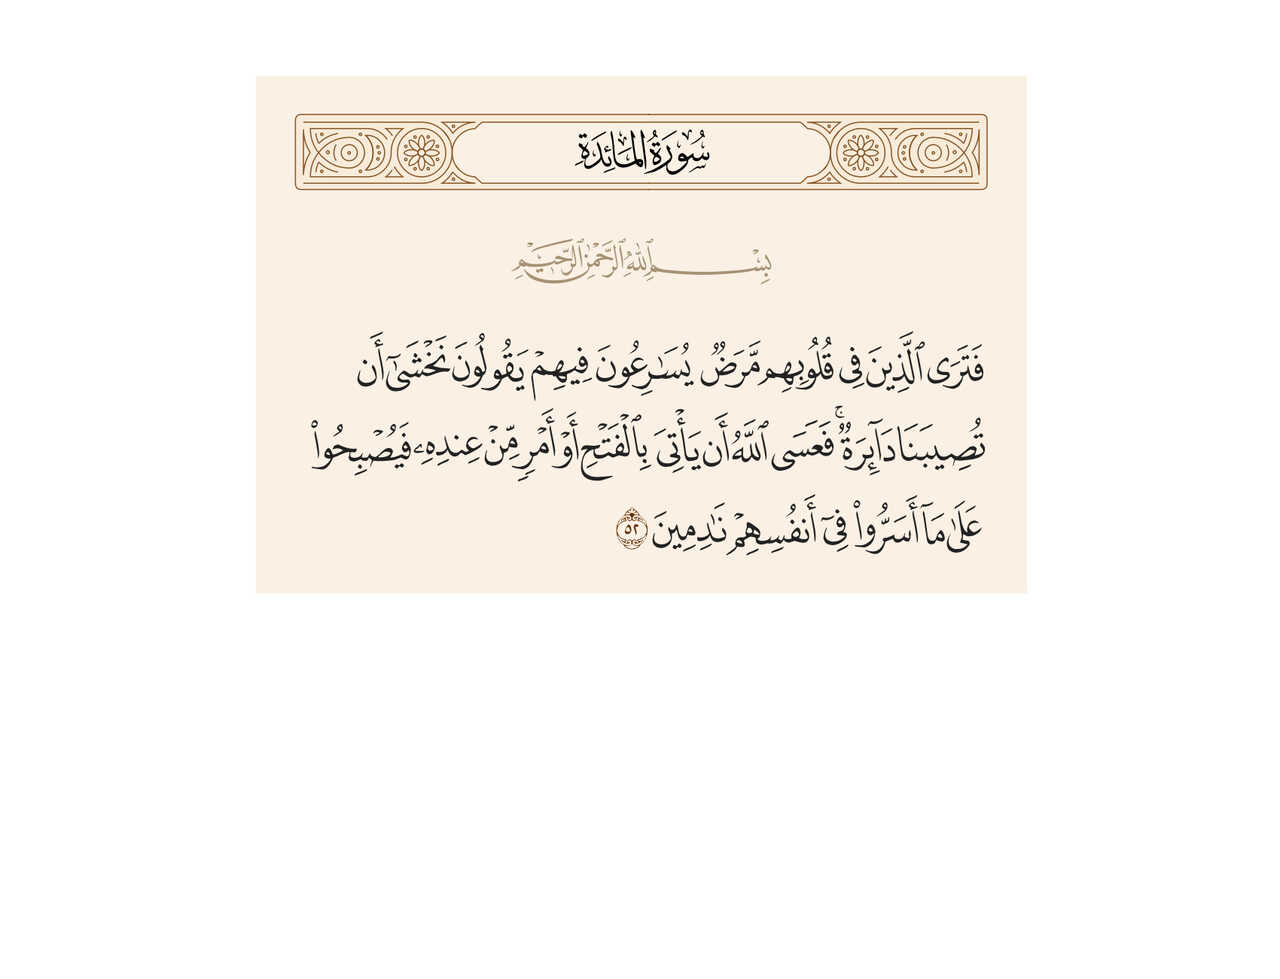 سُورَةُ المَائِدَةِ
بِسْمِ اللَّهِ الرَّحْمَٰنِ الرَّحِيمِ
فَتَرَى ٱلَّذِينَ فِى قُلُوبِهِم مَّرَضٌ يُسَـٰرِعُونَ فِيهِمْ يَقُولُونَ نَخْشَىٰٓ أَن
تُصِيبَنَا دَآئِرَةٌ ۚ فَعَسَى ٱللَّهُ أَن يَأْتِىَ بِٱلْفَتْحِ أَوْ أَمْرٍ مِّنْ عِندِهِۦ فَيُصْبِحُوا۟
عَلَىٰ مَآ أَسَرُّوا۟ فِىٓ أَنفُسِهِمْ نَـٰدِمِينَ ٥٢